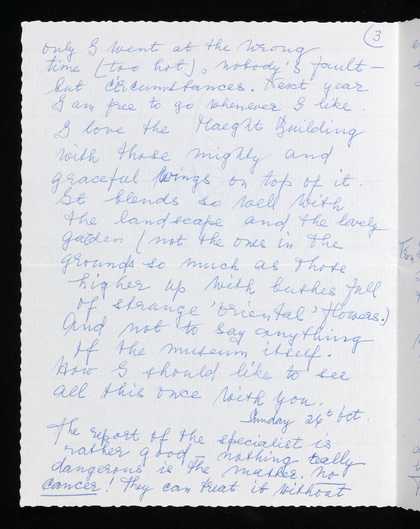 3
only I went at the wrong
time (too hot), nobody's fault –
but circumstances. Next year
I am free to go whenever I like.
I love the Maeght Building
with those mighty and
graceful wings on top of it.
It blends so well with
the landscape and the lovely
garden (not the ones in the
grounds so much as those
higher up with bushes full
of strange 'oriental' flowers.)
And not to say anything
of the museum itself.
How I should like to see
all this once with you.
Sunday 26th Oct.
The report of the specialist is
rather good – nothing really
dangerous is the matter. No
cancer! They can treat it without